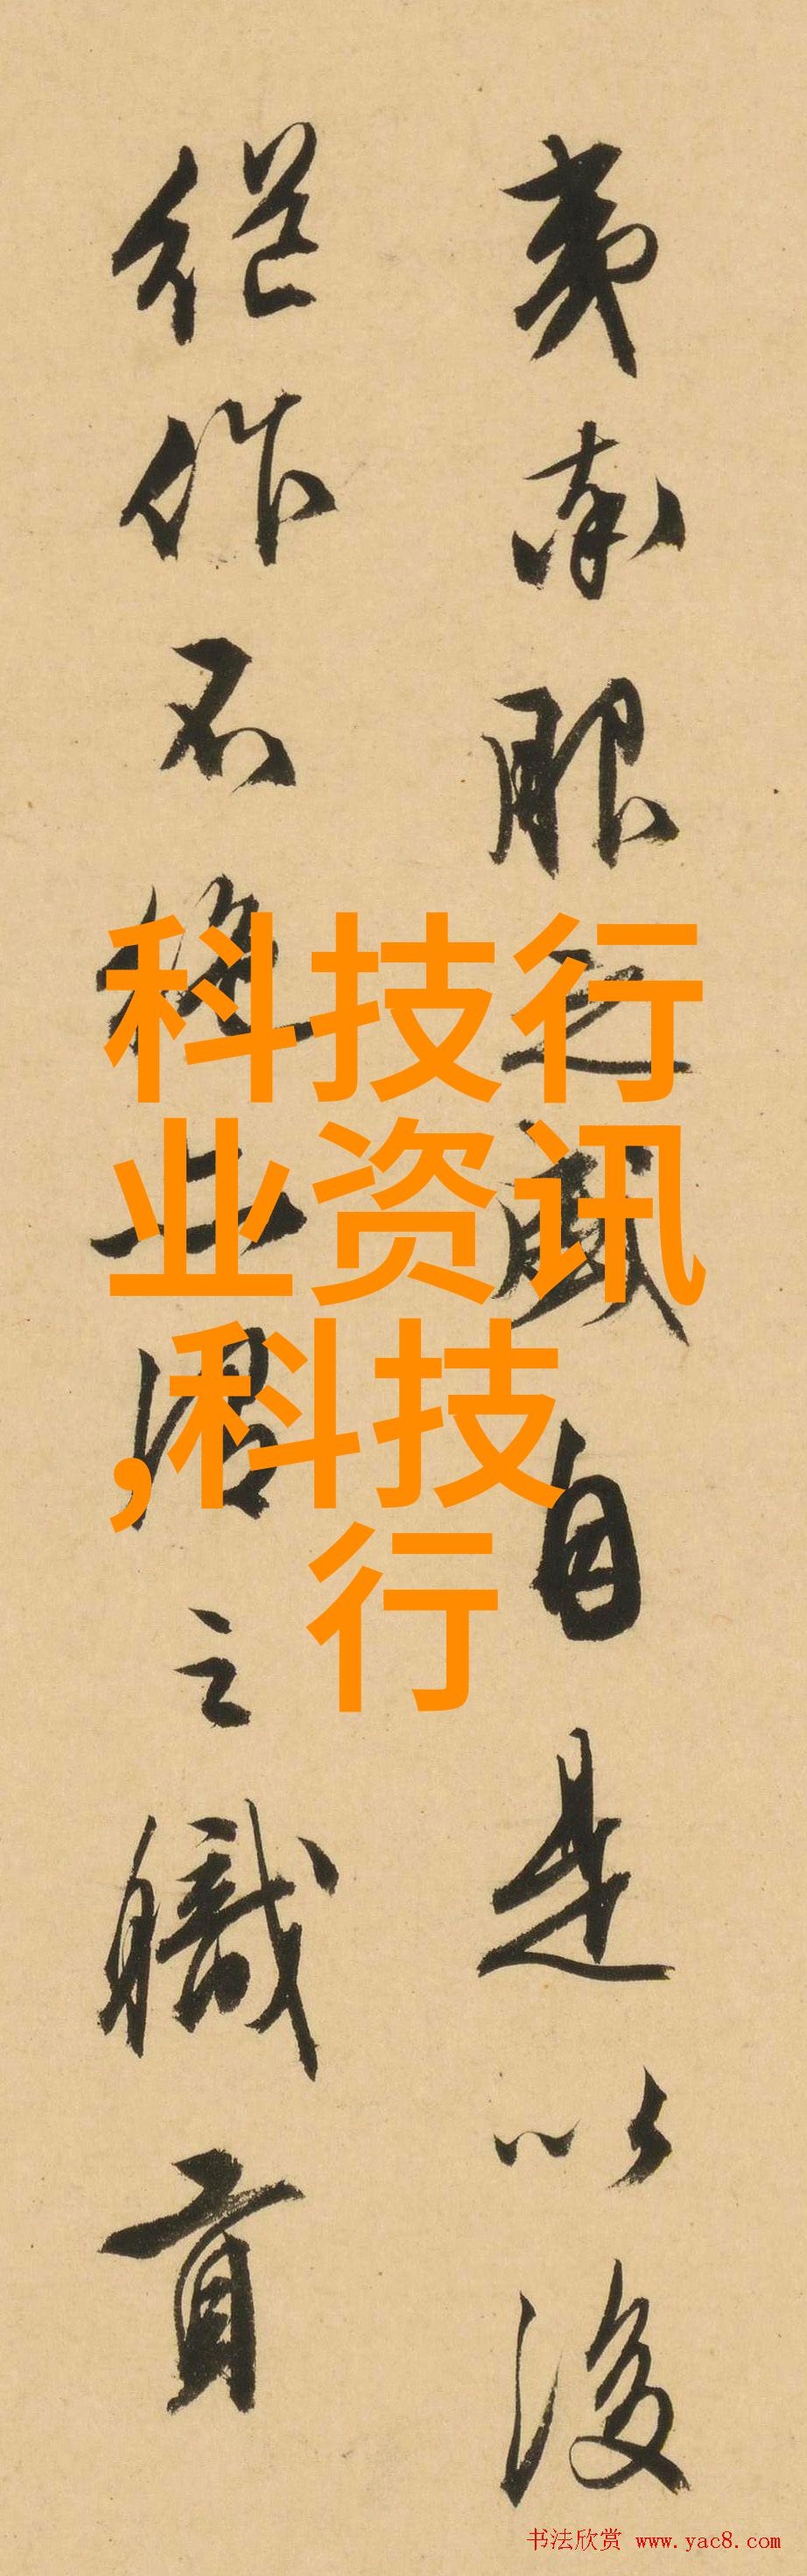 夷服之盛自是以後
作不之職貢
科技行
业资讯
,科技
行
书法欣赏 www.yac8.com